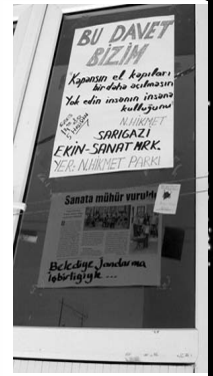 BU DAVET
BİZİM
Kapansın el kapıları
birdaha açılmasın
Yok edin insanın insana
kulluğunu
N.HİKMET
SARIGAZİ
EKİN-SANAT MRK.
YER: N.HİKMET PARKI
Sanata mühür vuruldu
Belediye Jandarma
işbirliğiyle ...